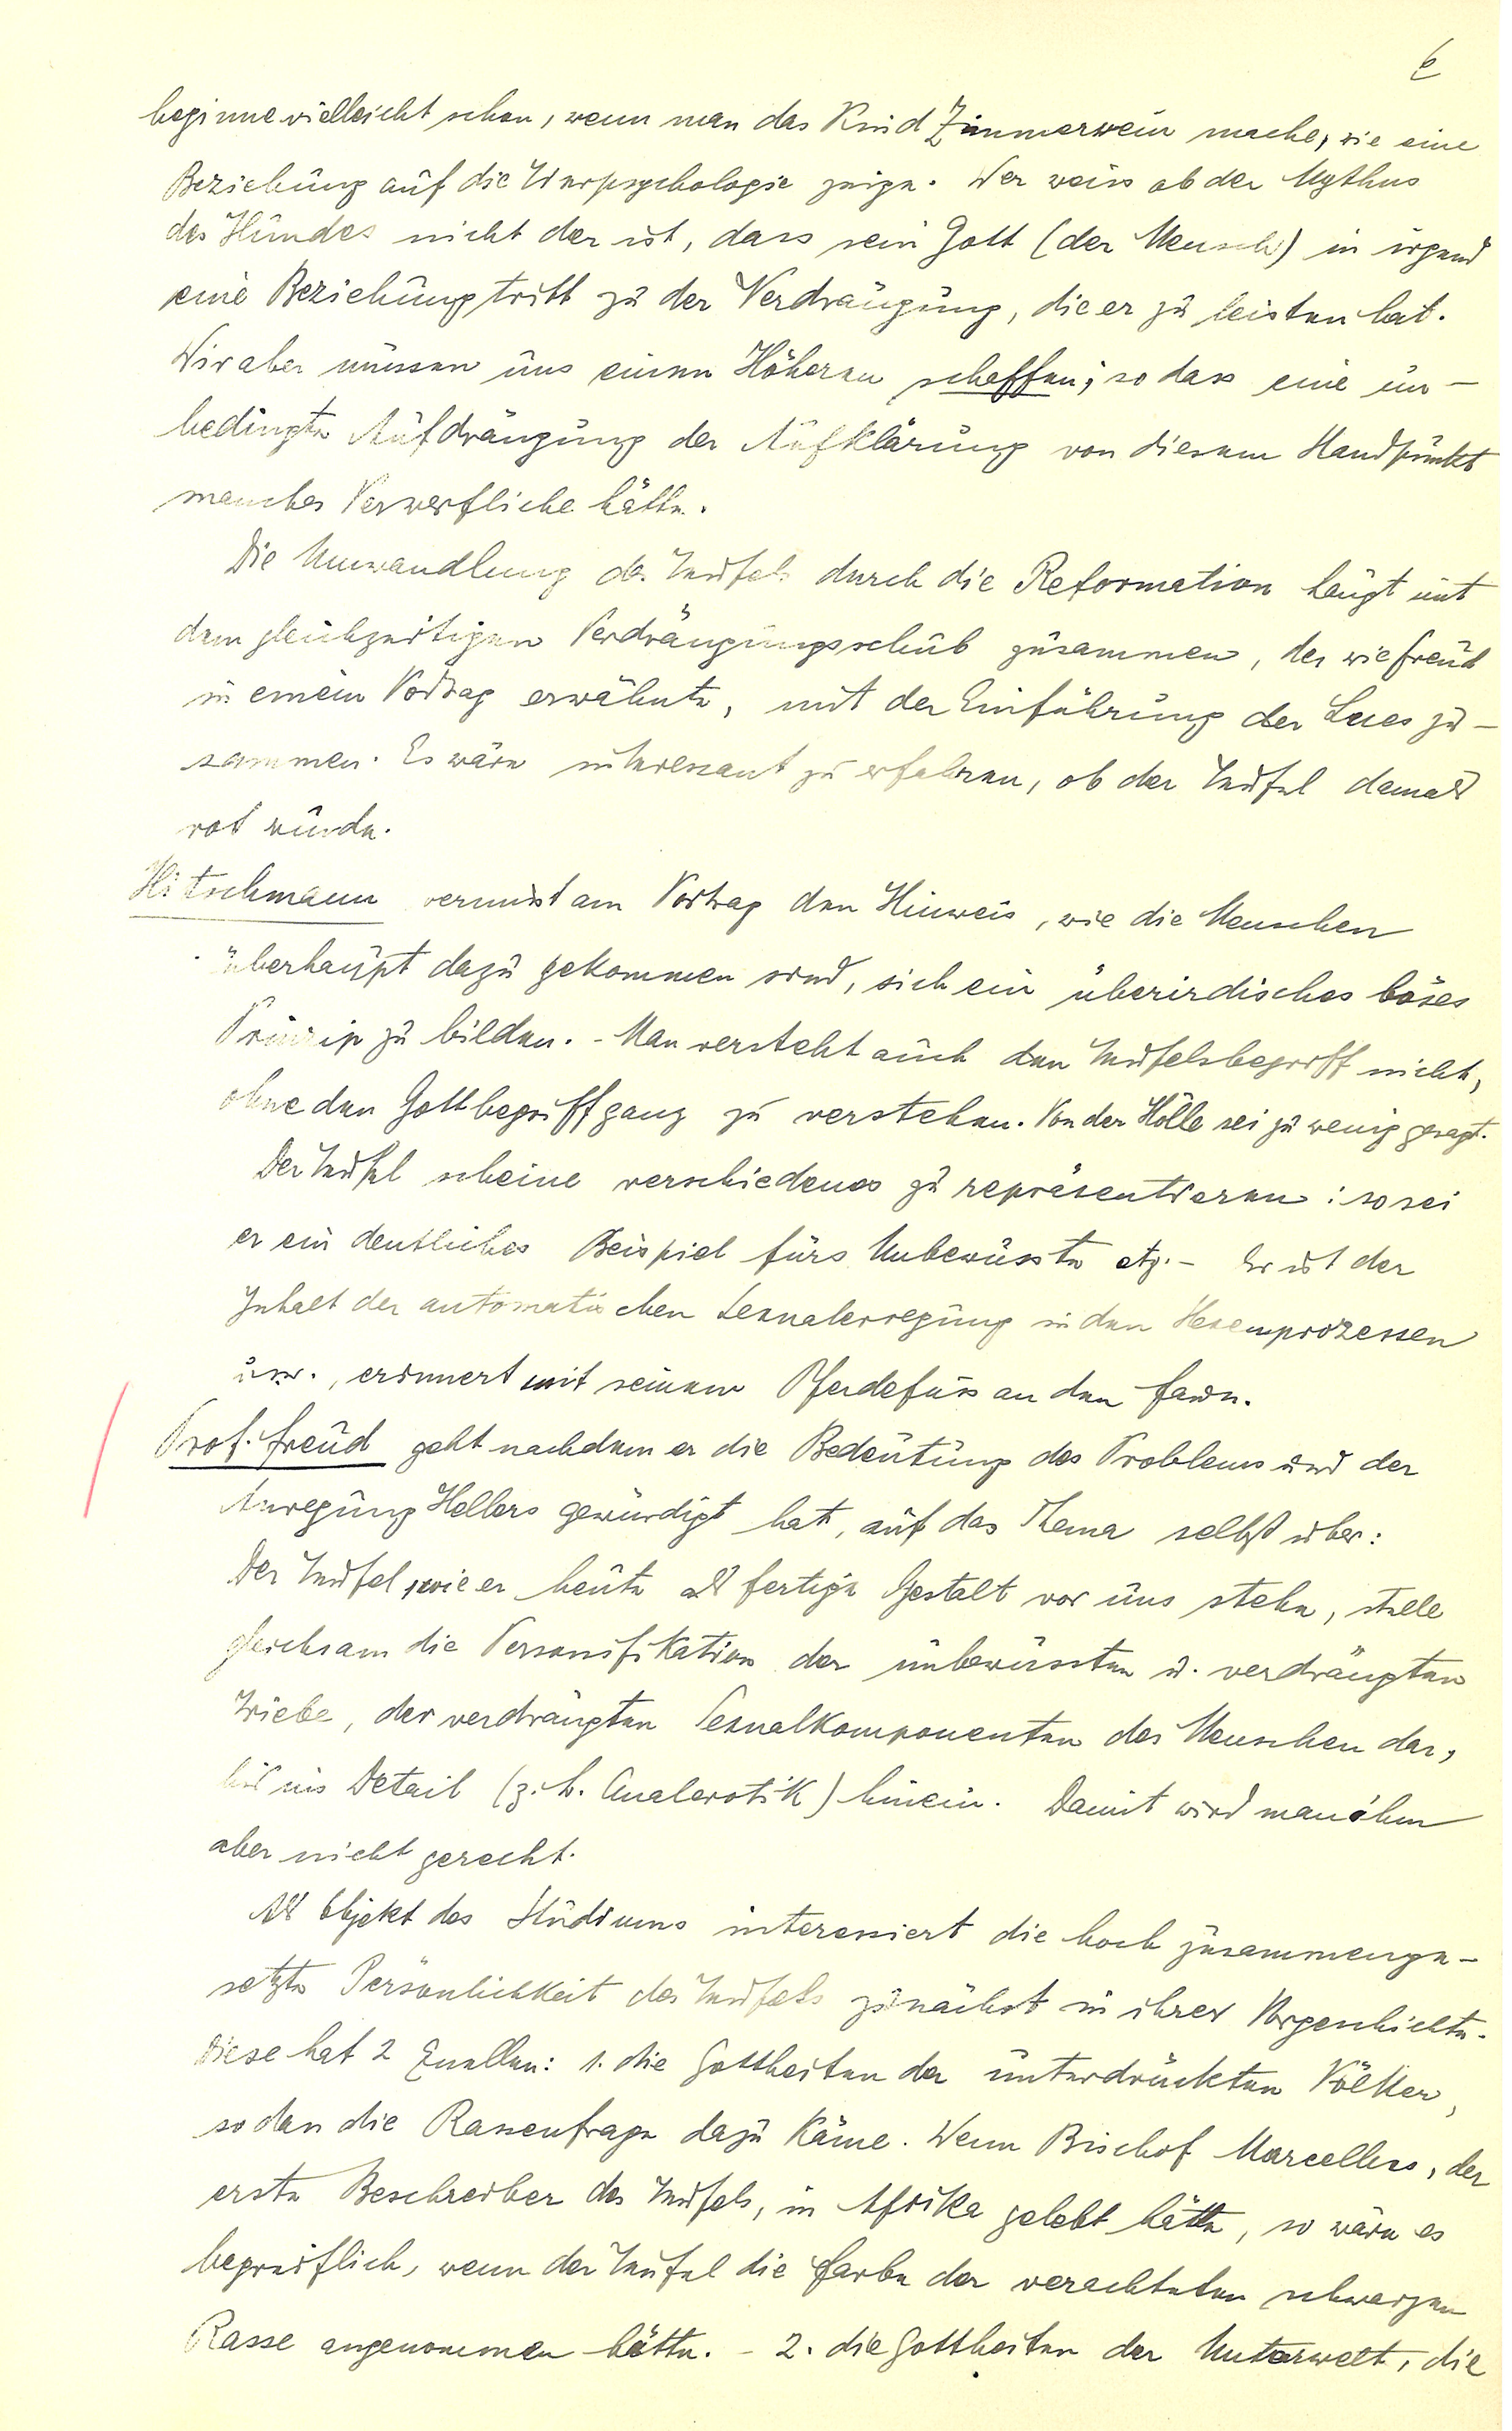 6
beginne vielleicht schon, wenn man das Kind Zimmerrein mache, wie eine
Beziehung auf die Tierpsychologie zeige. Wer weiss ob der Mythus
des Hundes nicht der ist, dass sein Gott (der Mensch) in irgend
eine Beziehung tritt zu der Verdrängung, die er zu leisten hat.
Wir aber müssen uns einen Höheren schaffen; so dass eine un-
bedingte Aufdrängung der Aufklärung von diesem Standpunkt
manches Verwerfliche hätte.
Die Umwandlung des Teufels durch die Reformation hängt mit
dem gleichzeitigen Verdrängungsschub zusammen, der wie Freud
in einem Vortrag erwähnte, mit der Einführung der Lues zu-
sammen. Es wäre interessant zu erfahren, ob der Teufel damals
rot wurde.
Hitschmann vermisst am Vortrag den Hinweis, wie die Menschen
überhaupt dazu gekommen sind, sich ein überirdisches böses
Prinzip zu bilden. - Man versteht auch den Teufelsbegriff nicht,
ohne den Gottbegriff ganz zu verstehen. Von der Hölle sei zu wenig gesagt.
Der Teufel scheine verschiedenes zu repräsentieren: so sei
er ein deutliches Beispiel fürs Unbewusste etz. - Er ist der
Inhalt der automatischen Sexualerregung in den Hexenprozessen
usw., erinnert mit seinem Pferdefuss an den Faun.
Prof. Freud geht nachdem er die Bedeutung des Problems und der
Anregung Hellers gewürdigt hat, auf das Thema selbst über:
Der Teufel, wie er heute als fertige Gestalt vor uns stehe, stelle
gleichsam die Personifikation der unbewussten u. verdrängten
Triebe, der verdrängten Sexualkomponenten des Menschen dar,
bis ins Detail (z. b. Analerotik) hinein. Damit wird man ihm
aber nicht gerecht.
Als Objekt des Studiums interessiert die hoch zusammenge-
setzte Persönlichkeit des Teufels zunächst in ihrer Vorgeschichte.
Diese hat 2 Quellen: 1. die Gottheiten der unterdrückten Völker,
so dass die Rassenfrage dazu käme. Wenn Bischof Marcellus, der
erste Beschreiber des Teufels, in Afrika gelebt hätte, so wäre es
begreiflich, wenn der Teufel die Farbe der verachteten schwarzen
Rasse angenommen hätte. - 2. die Gottheiten der Unterwelt, die